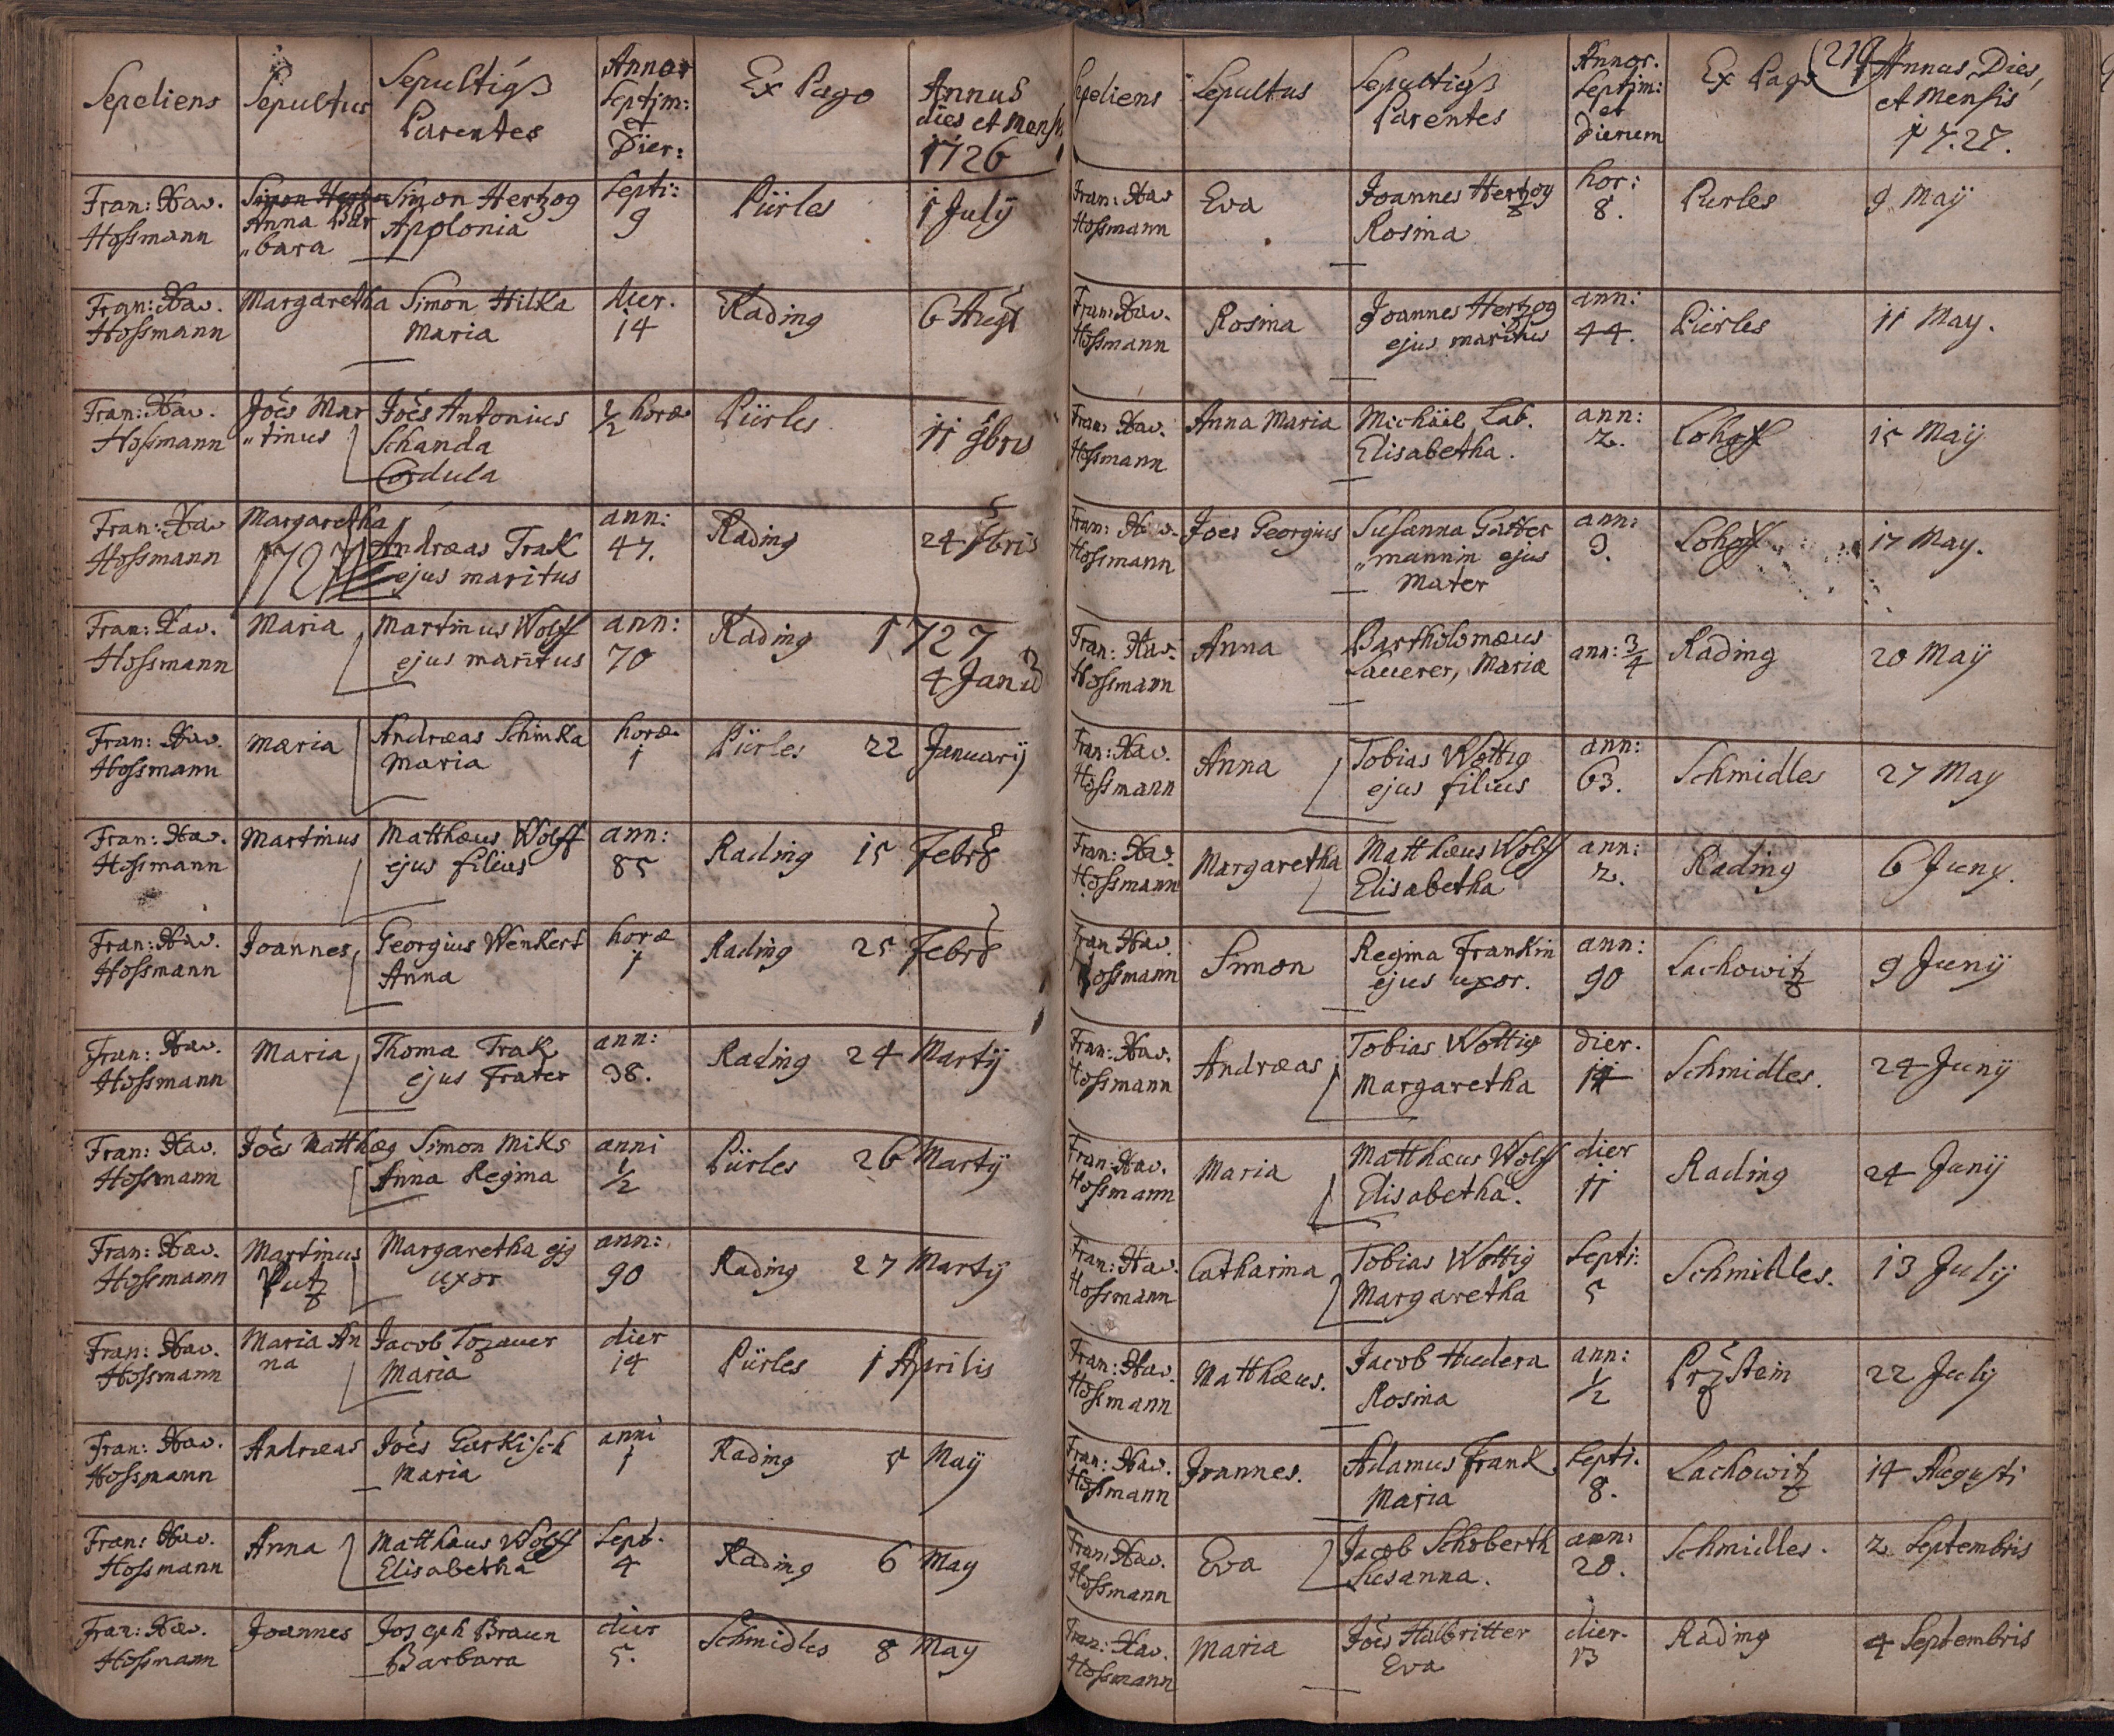 Sepeliens Sepultus Sepultiq3 Parentes Annor Septim: et Dier: Ex Pago Annus dies et Mens. 1726
Fran: Xav. Simon Hertzog Simon Hertzog Septi: Pürles 1 July
Hossmann Anna Bar Apolonia 9
"bara
Fran: Xav. Margaretha Simon Hilka dier. Rading 6 Aug
Hossmann Maria 14
Fran: Xav. Joes Mar Joes Antonius ½ horæ Pürles 11 9bris
Hossmann "tinus Schanda
Cordula
Fran: Xav Margaretha ann: Rading 24
Hossmann 1727 Andræas Trak 47.
ejus maritus
Fran: Xav. Maria Martinus Wolff ann: Rading 1727
Hossmann ejus maritus 70 4 Janu
Fran: Xav. Maria Andræas Schinka horæ Pürles 22 Januarij
Hossmann Maria 1
Fran: Xav. Martinus Matthæus Wolff ann: Rading 15 Febr
Hossmann ejus filius 85
Fran: Xav. Joannes Georgius Wenkert horæ Rading 25 Febr
Hossmann Anna 1
Fran: Xav. Maria Thoma Trak ann: Rading 24 Martij
Hossmann ejus Frater 38.
Fran: Xav. Joes Matthæg Simon Miks anni Pürles 26 Martij
Hossmann Anna Regina ½
Fran: Xav. Martinus Margaretha ejg ann: Rading 27 Martij
Hossmann Putz uxor 90
Fran: Xav. Maria An Jacob Tozauer dier Pürles 1 Aprilis
Hossmann na Maria 14
Fran: Xav. Andræas Joes Gurkisch anni Rading 5 Maij
Hossmann Maria 1
Fran: Xav. Anna Matthæus Wolff Sept. Rading 6 May
Hossmann Elisabetha 4
Fran: Xav. Joannes Joseph Braun dier Schmidles 8 May
Hossmann Barbara 5.
Sepeliens Sepultus Sepultiq3 Parentes Annor. Septim: et Dierum Ex Pago 219 Annus, Dies, et Mensis 1727.
Fran: Xav Eva Joannes Hertzog hor: Purles 9 Maij
Hossmann Rosina 8.
Fran: Xav. Rosina Joannes Hertzog ann: Pürles 11 May.
Hossmann ejus maritus 44.
Fran: Xav. Anna Maria Michäel Lab. ann: Lohoff 15 Maij
Hossmann Elisabetha. 2.
Fran: Xav. Joes Georgius Susanna ann: Lohoff 17 May.
Hossmann "mannin ejus 3.
Mater
Fran: Xav. Anna Bartholomæus ann: ¾ Rading 20 Maij
Hossmann Lauerer, Maria
Fran: Xav. Anna Tobias Wottig ann: Schmidles 27 May
Hossmann ejus filius 63.
Fran: Xav. Margaretha Matthæus Wolff ann: Rading 6 Juny.
Hossmann Elisabetha 2.
Fran Xav. Simon Regina Frankin ann: Lachowitz 9 Junij
Hossmann ejus uxor. 90
Fran: Xav. Andræas Tobias Wottig dier. Schmidles. 24 Junij
Hossmann Margaretha 14
Fran: Xav. Maria Matthæus Wolff dier Rading 24 Junij
Hossmann Elisabetha. 11
Fran: Xav. Catharina Tobias Wottig Septi: Schmidles. 13 Julij
Hossmann Margaretha 5
Fran: Xav. Matthæus. Jacob Hudera ann: Przstein 22 July
Hossmann Rosina ½
Fran: Xav. Joannes. Adamus Frank Septi. Lachowitz 14 Augusti
Hossmann Maria 8.
Fran: Xav. Eva Jacob Schoberth ann: Schmidles. 2 Septembris
Hossmann Susanna. 20.
Fran: Xav. Maria Joes Halbritter dier. Rading 4 Septembris
Hossmann Eva 13